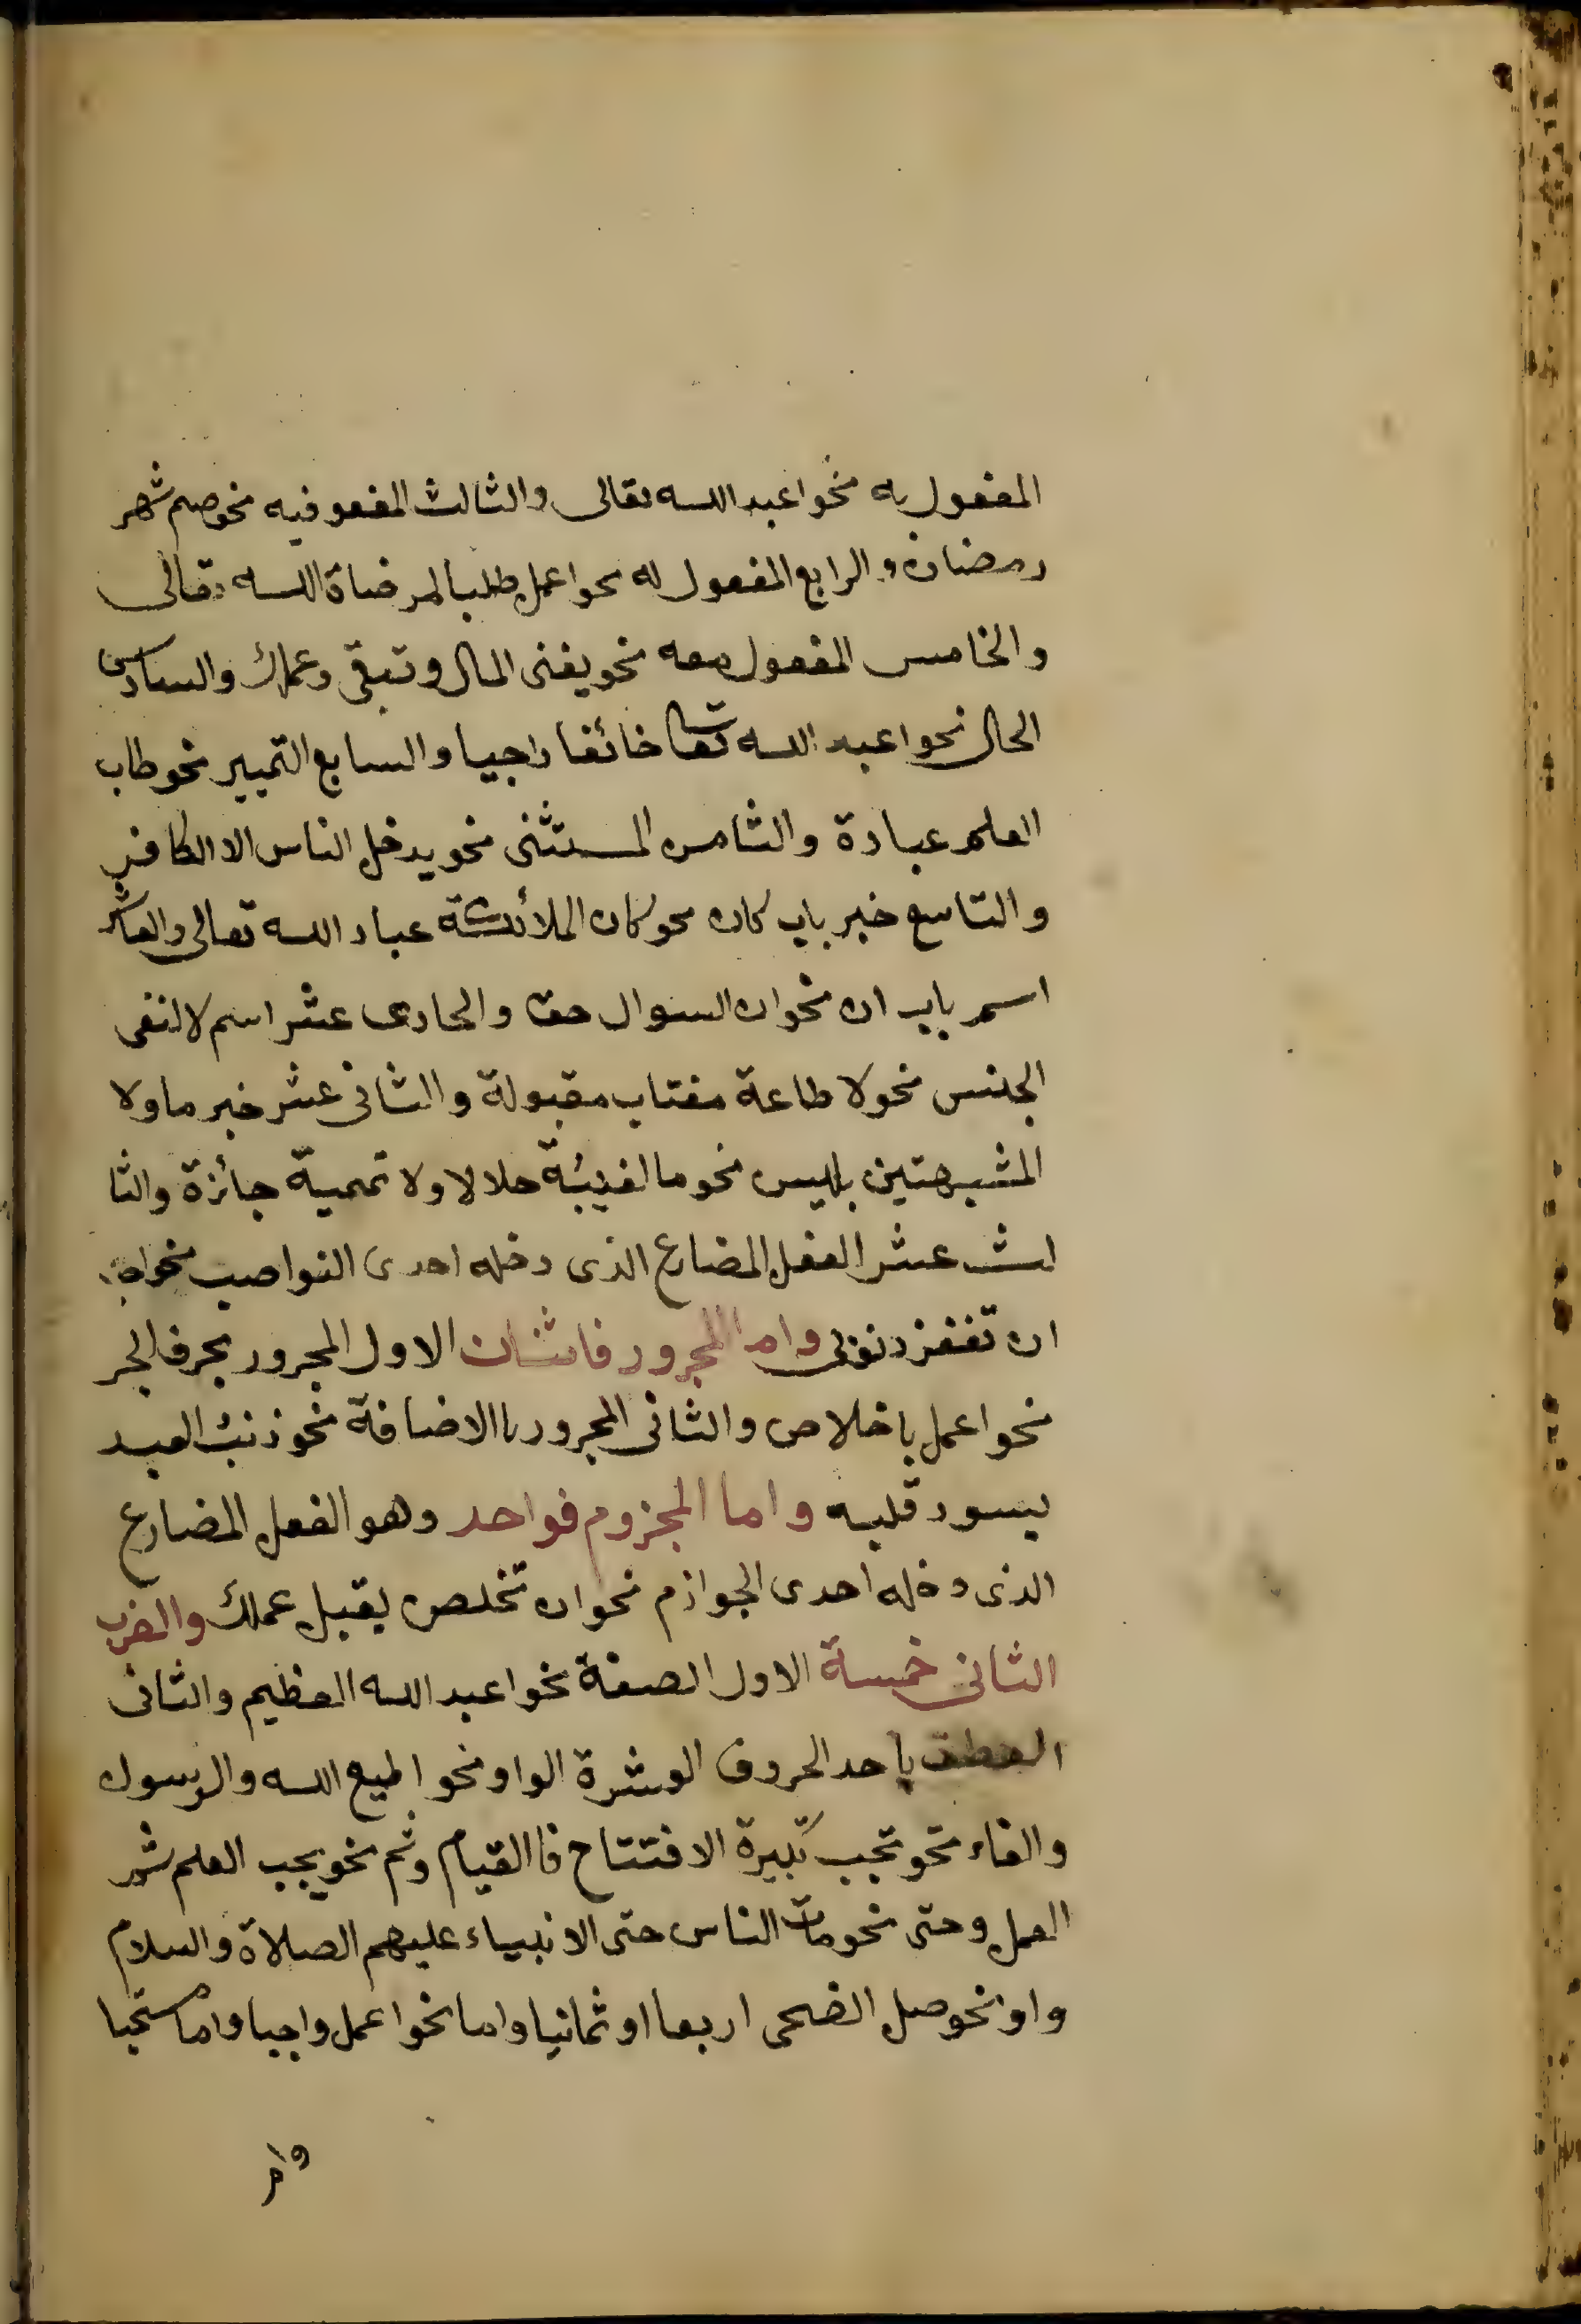 المفعول به نحو اعبد الله تعالى والثالث المفعو فيه نحو صم شهر
رمضان والرابع المفعول له نحو اعمل طلبا لمرضاة الله تعالى
والخامس المفعول معه نحو يفنى المال وتبقى وعملك والسادس
الحال نحو اعبد الله تعا خائفا راجيا والسابع التمييز نحو طاب
العلم عبادة والثامن المستثنى نحو يدخل الناس الا الكافر
والتاسع خبر باب كان نحو كان الملائكة عباد الله تعالى والعاشر
اسم باب ان نحو ان السوال حق والحادى عشر اسم لا لنفى
الجنس نحو لا طاعة مغتاب مقبولة والثانى عشر خبر ما ولا
المشبهتين بليس نحو ما الغيبة حلالا ولا نميمة جائزة والثا
لث عشر الفعل المضارع الذى دخله احدى النواصب نحو احب
ان تغفر ذنوبى واما المجرور فاثنان الاول المجرور بحرف الجر
نحو اعمل باخلاص والثانى المجرور باالاضافة نحو ذنب العبد
يسود قلبه واما المجزوم فواحد وهو الفعل المضارع
الذى دخله احدى الجوازم نحو ان تخلص يقبل عملك والضرب
الثانى خمسة الاول الصفة نحو اعبد الله العظيم والثانى
العطف باحد الحروف العشرة الواو نحو اطيع الله والرسول
والفاء نحو تجب تكبيرة الافتتاح فا القيام وثم نحو يجب العلم ثم
العمل وحتى نحو مات الناس حتى الانبياء عليهم الصلاة والسلام
واو نحو صل الضحى اربعا او ثمانيا واما نحو اعمل واجبا واما مستحبا
وام